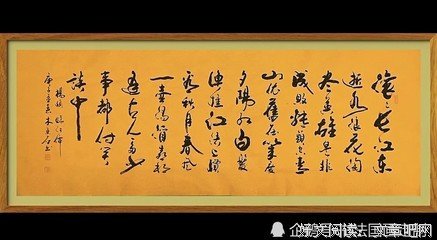 滚滚长江东
逝水浪花淘
尽英雄是非
成败转头空青
山依旧在几度
夕阳红白发
渔樵江渚上惯
看秋月春风
一壶浊酒喜相
逢古今多少
事都付笑
谈中
杨慎临江仙
文章吧网